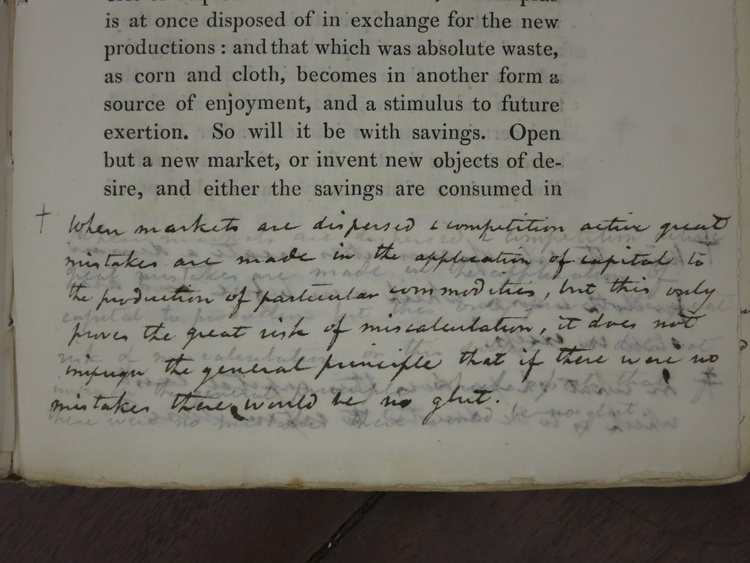 is at once disposed of in exchange for the new
productions : and that which was absolute waste,
as corn and cloth, becomes in another form a
source of enjoyment, and a stimulus to future
exertion. So will it be with savings. Open
but a new market, or invent new objects of de-
sire, and either the savings are consumed in
† When markets are dispersed & competition active great
mistakes are made in the application of capital to
the production of particular commodities, but this only
proves the great risk of miscalculation, it does not
impugn the general principle that if there were no
mistakes there would be no glut.